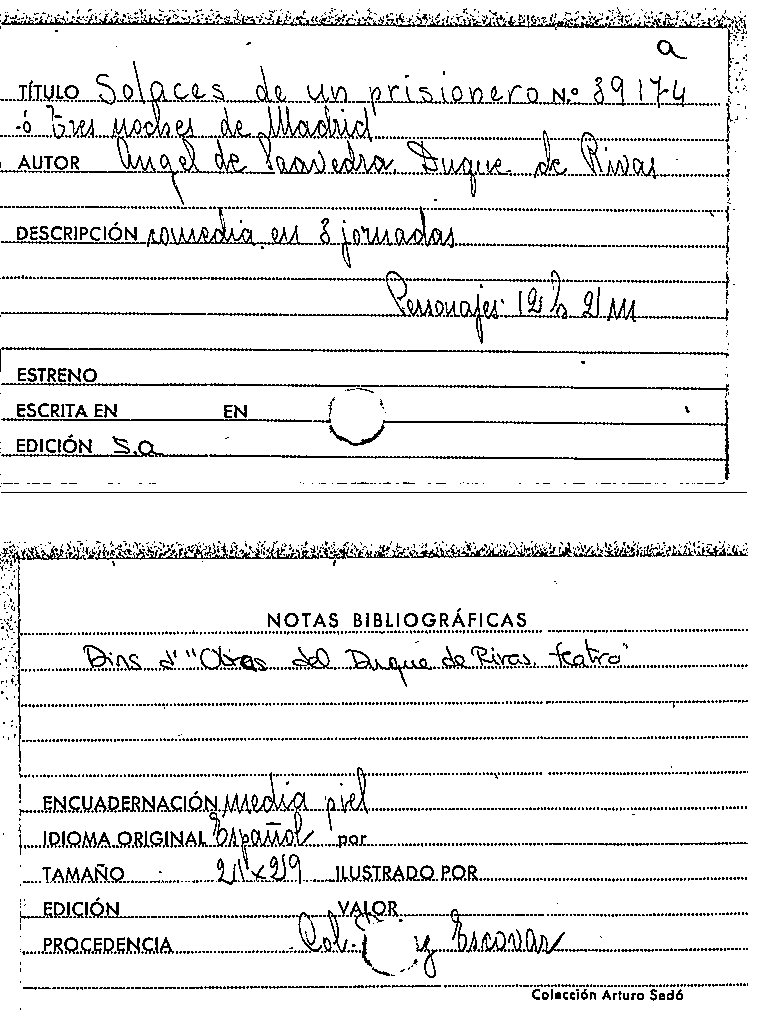 a
TÍTULO Solaces de un prisionero N.º 39174
ó tres noches de Madrid
AUTOR Angel de Saavedra, Duque de Rivas
DESCRIPCIÓN comedia en 3 jornadas
Personajes: 12 h 2 m
ESTRENO
ESCRITA EN EN
EDICIÓN S.a
NOTAS BIBLIOGRÁFICAS
Dins d' "Obras del Duque de Rivas. teatro"
ENCUADERNACIÓN media piel
IDIOMA ORIGINAL Español por
TAMAÑO ILUSTRADO POR
EDICIÓN VALOR
PROCEDENCIA Col. y Escovar
Colección Arturo Sedó